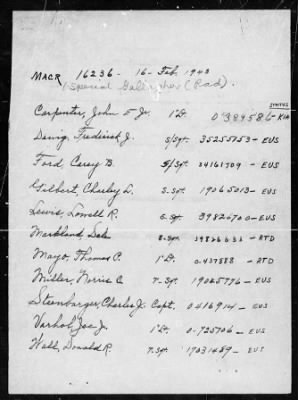 MACR 16236 - 16 - Feb. 1943
(Special (Rad).
STATUS
Carpenter, John F Jr. 1 Lt. 0-389586 - KIA
Frederick J. S/Sgt. 35255753 - EUS
Ford, Carey B. S/Sgt. 34161709 - EUS
Gilbert, Charley D. S. Sgt. 19065013 - EUS
Lewis, Lowell R. S. Sgt. 39826700 - EUS
Markland, Dale S. Sgt. 39826633 - RTD
Mayo, Thomas P. 1 Lt. 0-437888 - RTD
Miller, Norris C T. Sgt. 19025776 - EUS
Steenbarger, Charles J. Capt. 0416914 - EUS
Varhol, Joe J. 1 Lt. 0-725706 - EUS
Wall, Donald R. T. Sgt. 17031459 - EUS